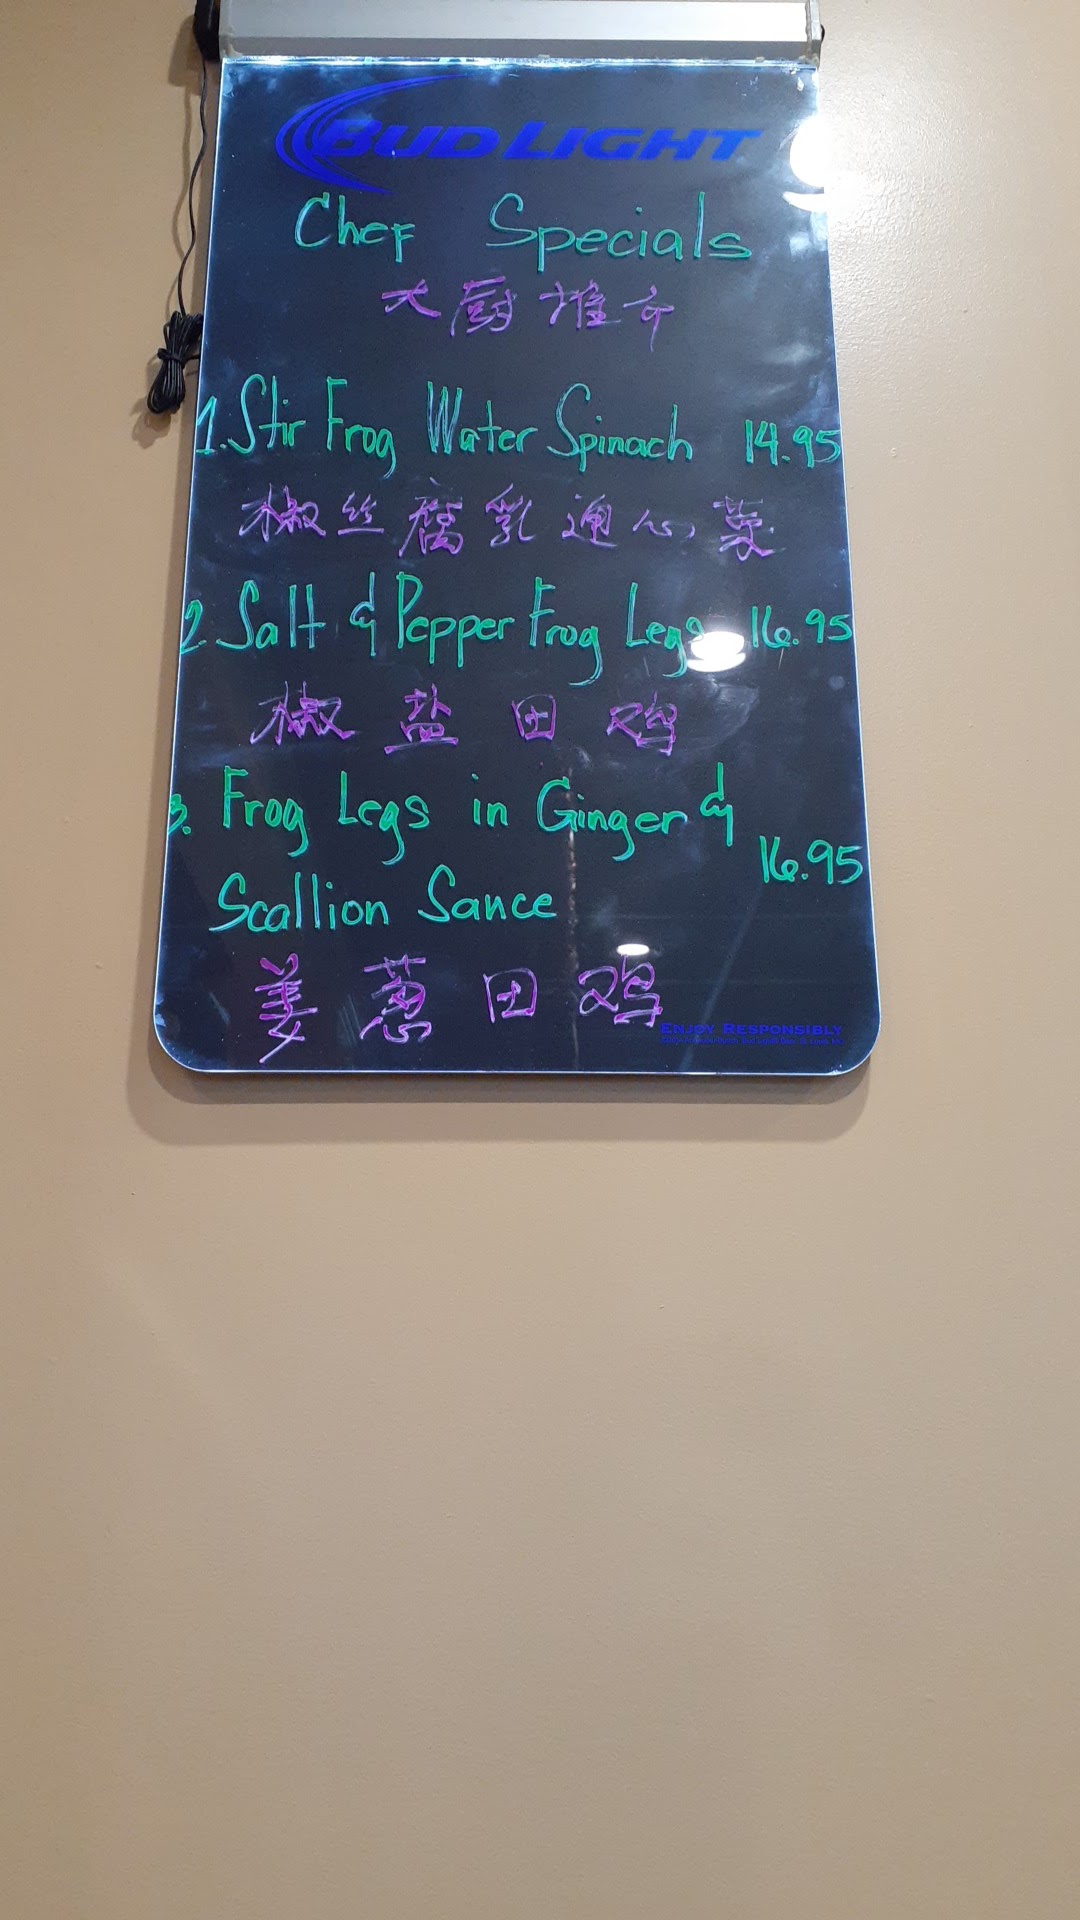 BUD LIGHT
Chef Specials
大厨推介
1. Stir Frog Water Spinach 14.95
椒丝腐乳通心菜
2 Salt & Pepper Frog Legs 16.95
椒盐田鸡
3. Frog Legs in Ginger &
16.95
Scallion Sance
姜葱田鸡
ENJOY RESPONSIBLY